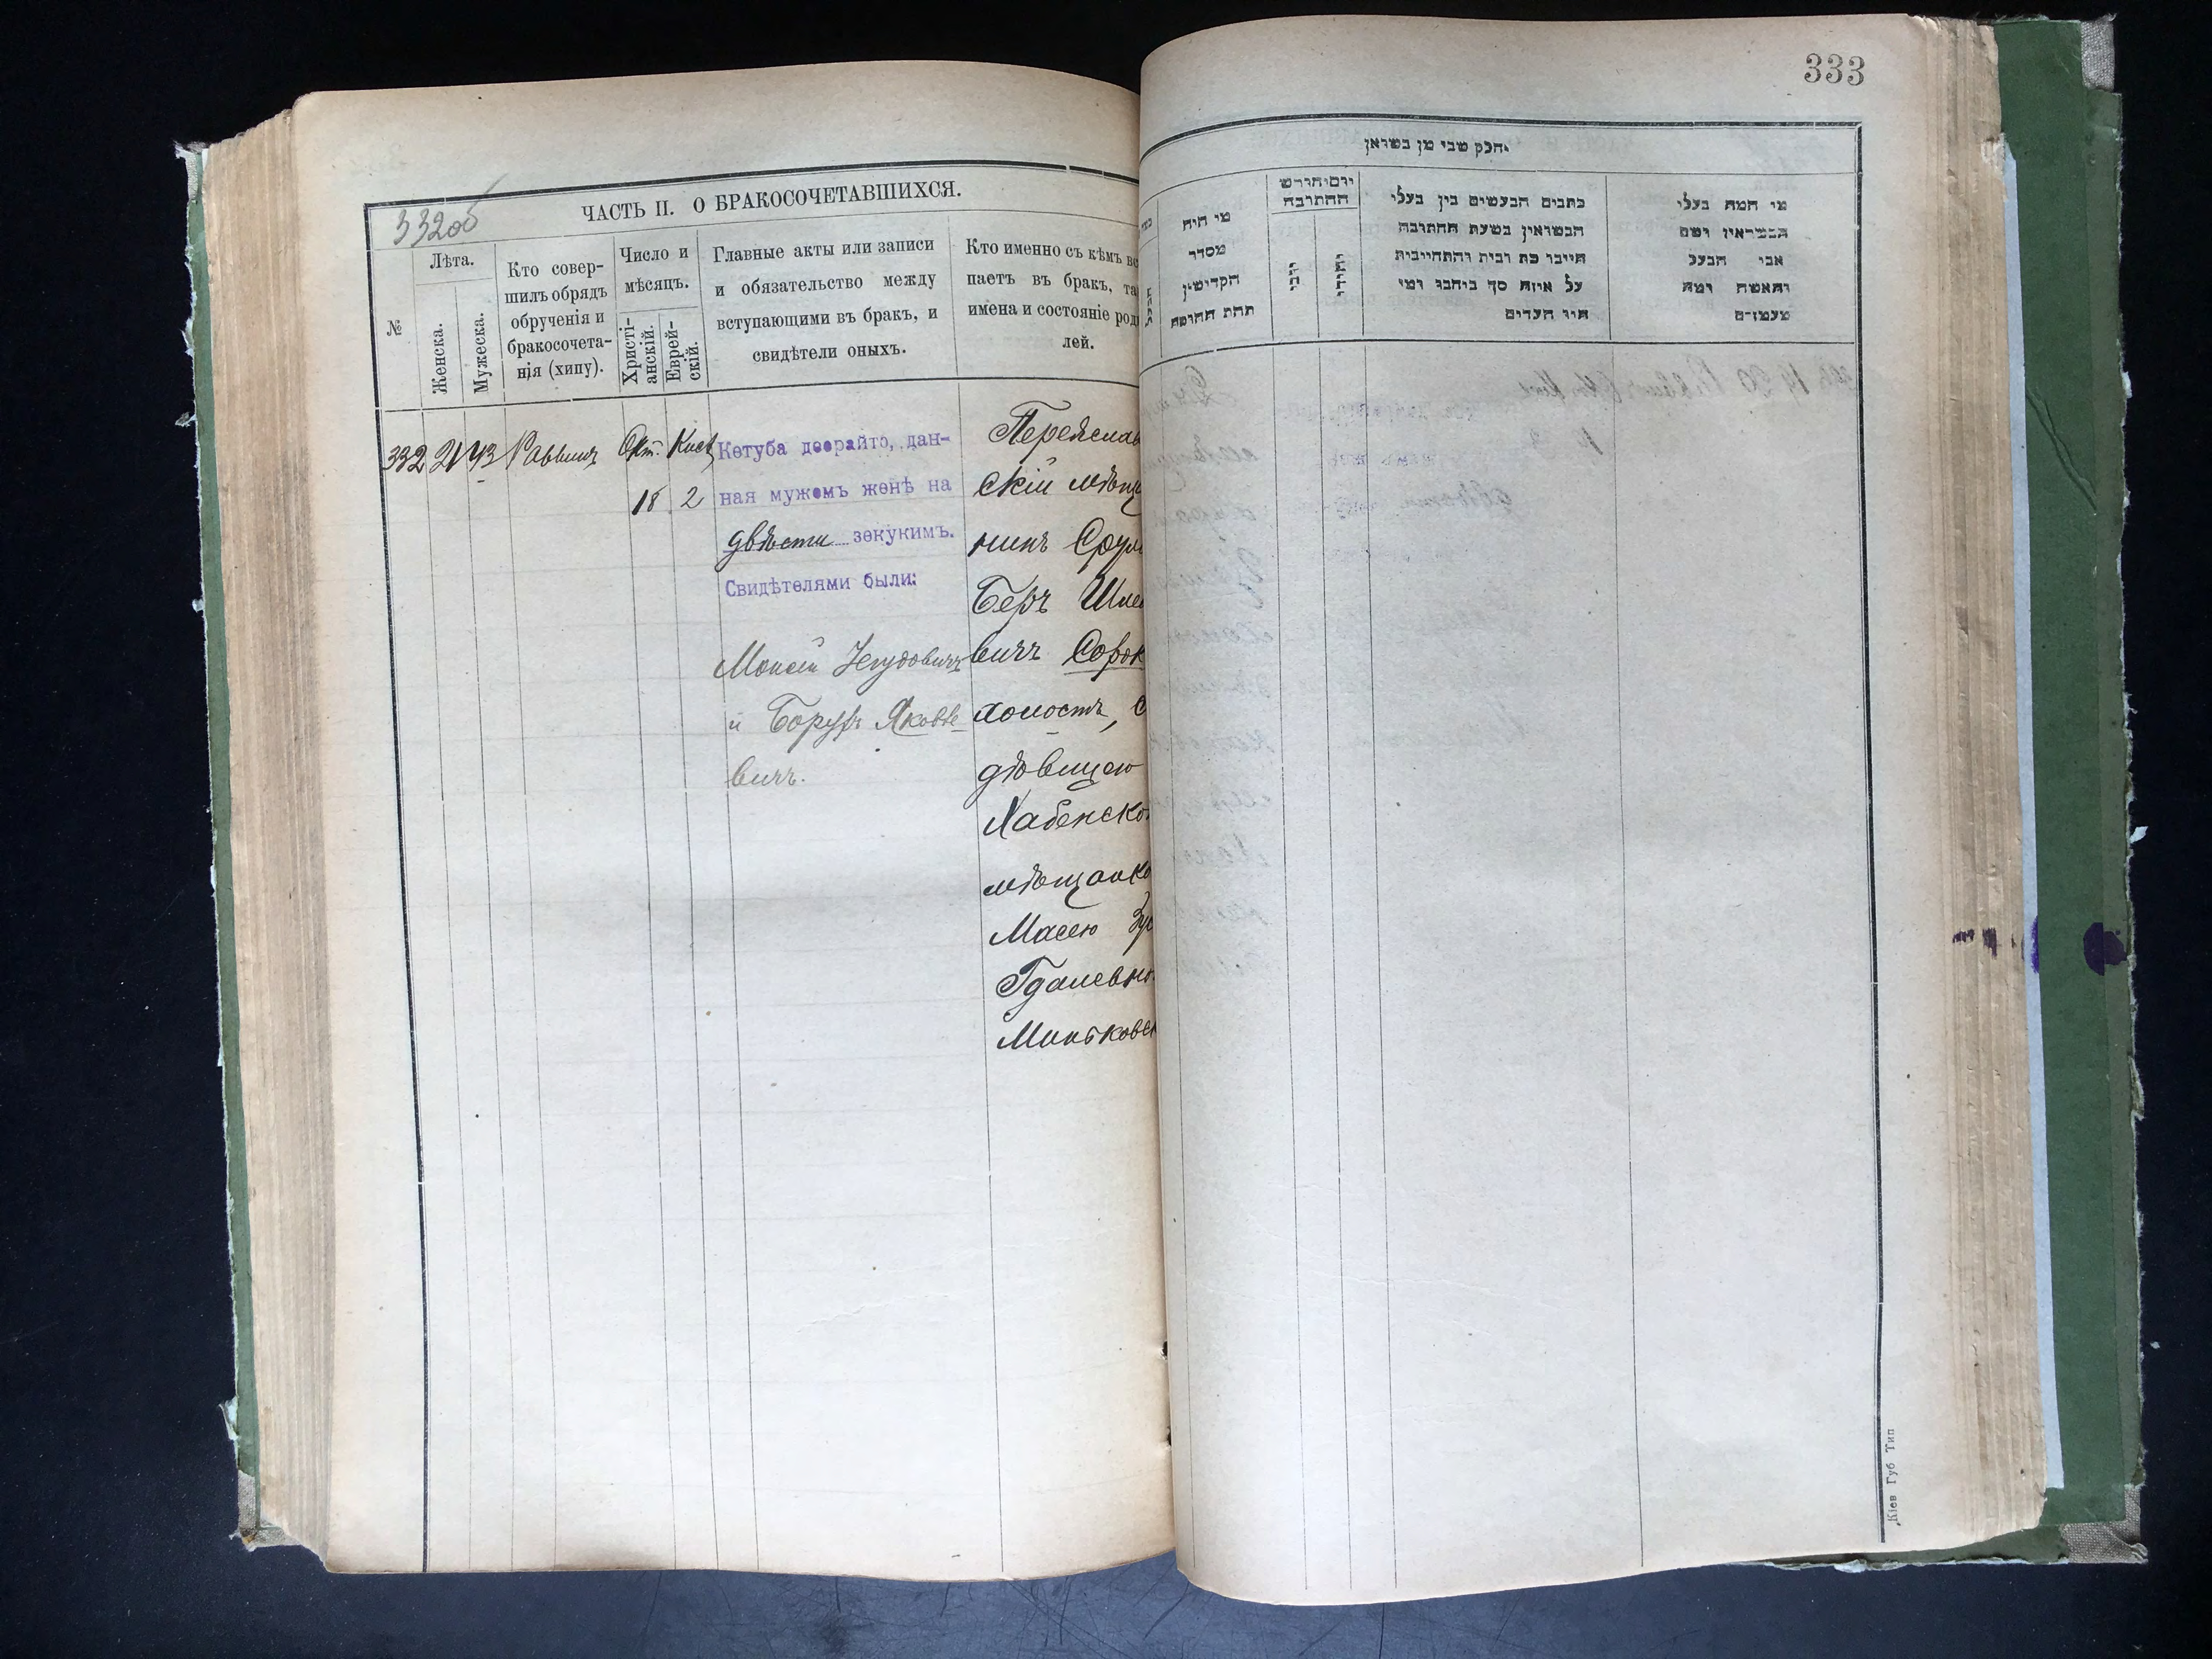 332об
ЧАСТЬ II. О БРАКОСОЧЕТАВШИХСЯ.
№
Лѣта.
Женска.
Мужеска.
Кто совер-
шилъ обрядъ
обрученія и
бракосочета-
нія (хипу).
Число и
мѣсяцъ.
Христі-
анскій.
Еврей-
скій.
Главные акты или записи
и обязательство между
вступающими въ бракъ, и
свидѣтели оныхъ.
Кто именно съ кѣмъ вс
паетъ въ бракъ, та
имена и состояніе род
лей.
332 21 43 Раввинъ Окт. Кисл
18 2
Кетуба деорайто, дан-
ная мужемъ женѣ на
двѣсти зекукимъ.
Свидѣтелями были:
Моисей Іегудовичъ
и Борухъ Яковле
вичъ.
Переяслав
скій мѣща
нинъ Срул
Беръ Шле
вичъ Сорок
холостъ, с
дѣвицею
Хабенско
мѣщанко
Масею
Гдалевно
Миньковск
333
חלק שני מן נשואין
מי היה
מסדר
הקדושין
תחת החופה
יום וחודש
החתונה
כתבים הנעשים בין בעלי
הנשואין בשעת החתונה
חייבו כת ובית והתחייבות
על איזה סך ביחבו ומי
היו העדים
מי המה בעלי
הנשואין ושם
אבי הבעל
והאשה ומה
מעמדם
Кіев Губ Тип